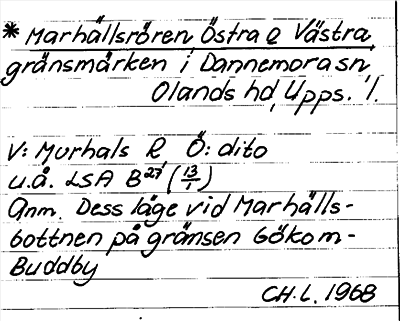 * Marhällsrören Östra o Västra,
gränsmärken i Dannemora sn,
Olands hd, Upps. l.
V: Murhals R Ö: dito
u.å. LSA B 27 (13/1)
Anm. Dess läge vid Marhälls-
bottnen på gränsen Gökom-
Buddby
CH.L. 1968